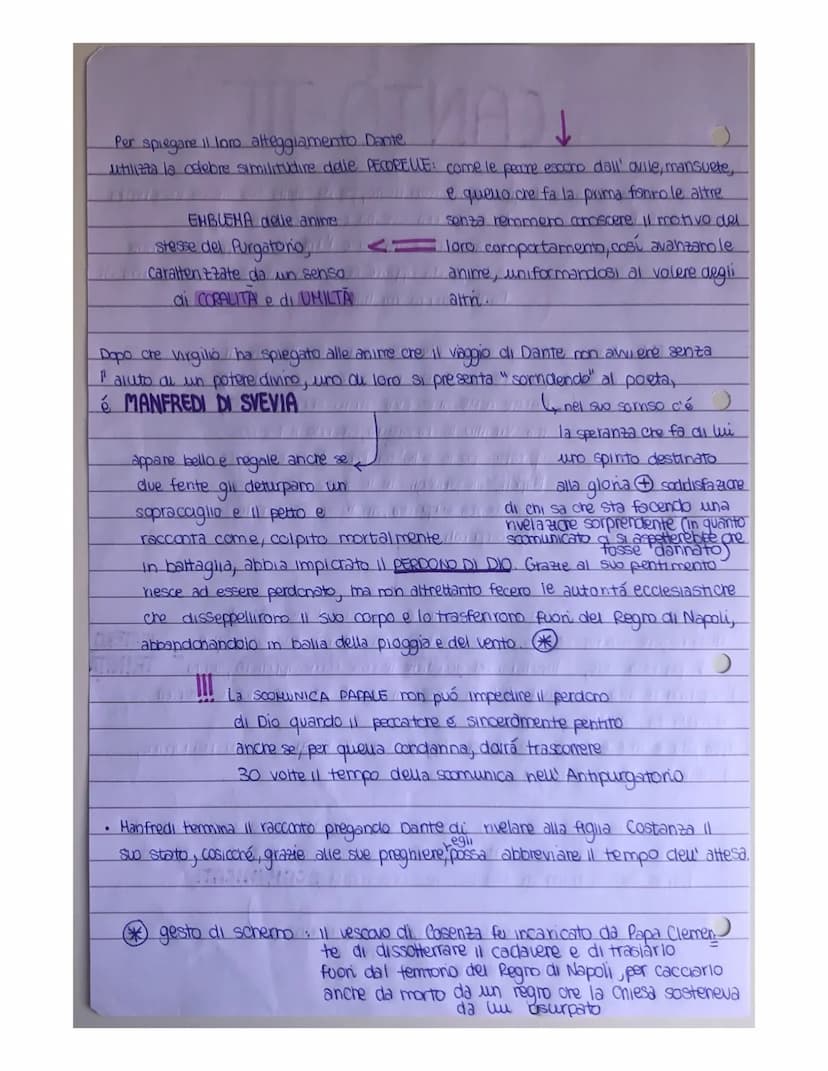 Per spiegare il loro atteggiamento Dante
utilizza la celebre similitudine delle PECORELLE: come le pecore escono dall' ovile, mansuete,
e quello che fa la prima fanno le altre
senza nemmeno conoscere il motivo del
loro comportamento, così avanzano le
anime, uniformandosi al volere degli
altri.
EMBLEMA delle anime
stesse del Purgatorio,
caratterizzate da un senso
di CORALITÀ e di UMILTÀ
Dopo che Virgilio ha spiegato alle anime che il viaggio di Dante non avviene senza
l' aiuto di un potere divino, uno di loro si presenta "sorridendo" al poeta,
é MANFREDI DI SVEVIA
nel suo sorriso c'é
la speranza che fa di lui
uno spirito destinato
alla gloria + soddisfazione
di chi sa che sta facendo una
rivelazione sorprendente (in quanto
scomunicato ci si aspetterebbe che
fosse dannato)
appare bello e regale anche se
due ferite gli deturpano un
sopracciglio e il petto e
racconta come, colpito mortalmente
in battaglia, abbia implorato il PERDONO DI DIO. Grazie al suo pentimento
riesce ad essere perdonato, ma non altrettanto fecero le autoritá ecclesiastiche
che disseppellirono il suo corpo e lo trasferirono fuori del Regno di Napoli,
abbandonandolo in balia della pioggia e del vento. *
!!! La SCOMUNICA PAPALE non puó impedire il perdono
di Dio quando il peccatore é sinceramente pentito
anche se, per quella condanna, dovrá trascorrere
30 volte il tempo della scomunica nell' Antipurgatorio
• Manfredi termina il racconto pregando Dante di rivelare alla figlia Costanza il
suo stato, cosicché, grazie alle sue preghiere, egli possa abbreviare il tempo dell' attesa.
* gesto di scherno : il vescovo di Cosenza fu incaricato da Papa Clemen
te di dissotterrare il cadavere e di traslarlo
fuori dal territorio del Regno di Napoli, per cacciarlo
anche da morto da un regno che la Chiesa sosteneva
da lui usurpato